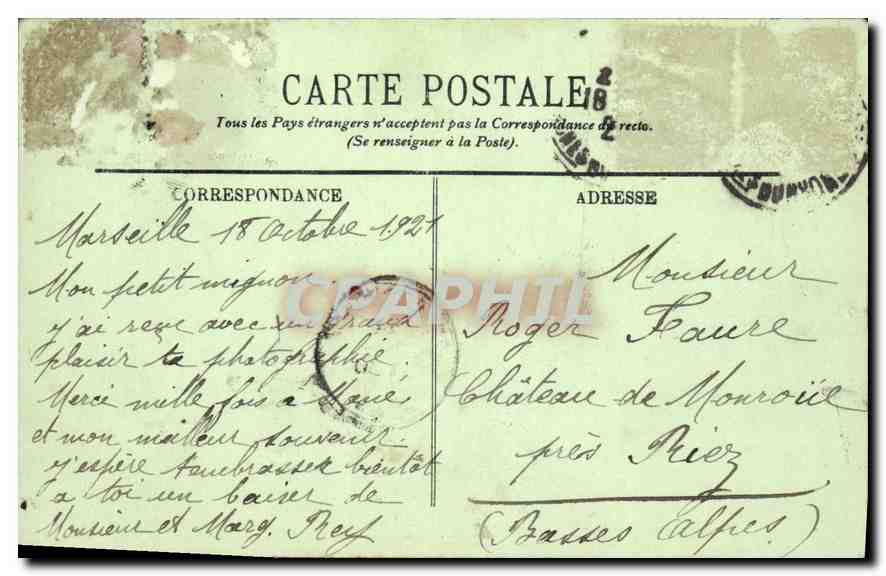 CARTE POSTALE
Tous les Pays étrangers n'acceptent pas la Correspondance au recto.
(Se renseigner à la Poste).
CORRESPONDANCE
Marseille 18 Octobre 1921
Mon petit mignon.
j'ai reçu avec un grand
plaisir ta photographie.
Merci mille fois a
et mon meilleur souvenir.
j'espère t'embrasser bientôt
a toi un baiser de
Monsieur et Marg. Rey
ADRESSE
Monsieur
Roger Faure
Château de Monroüe
près Riez
(Basses Alpes.)
CPAPHIL
2
18
2